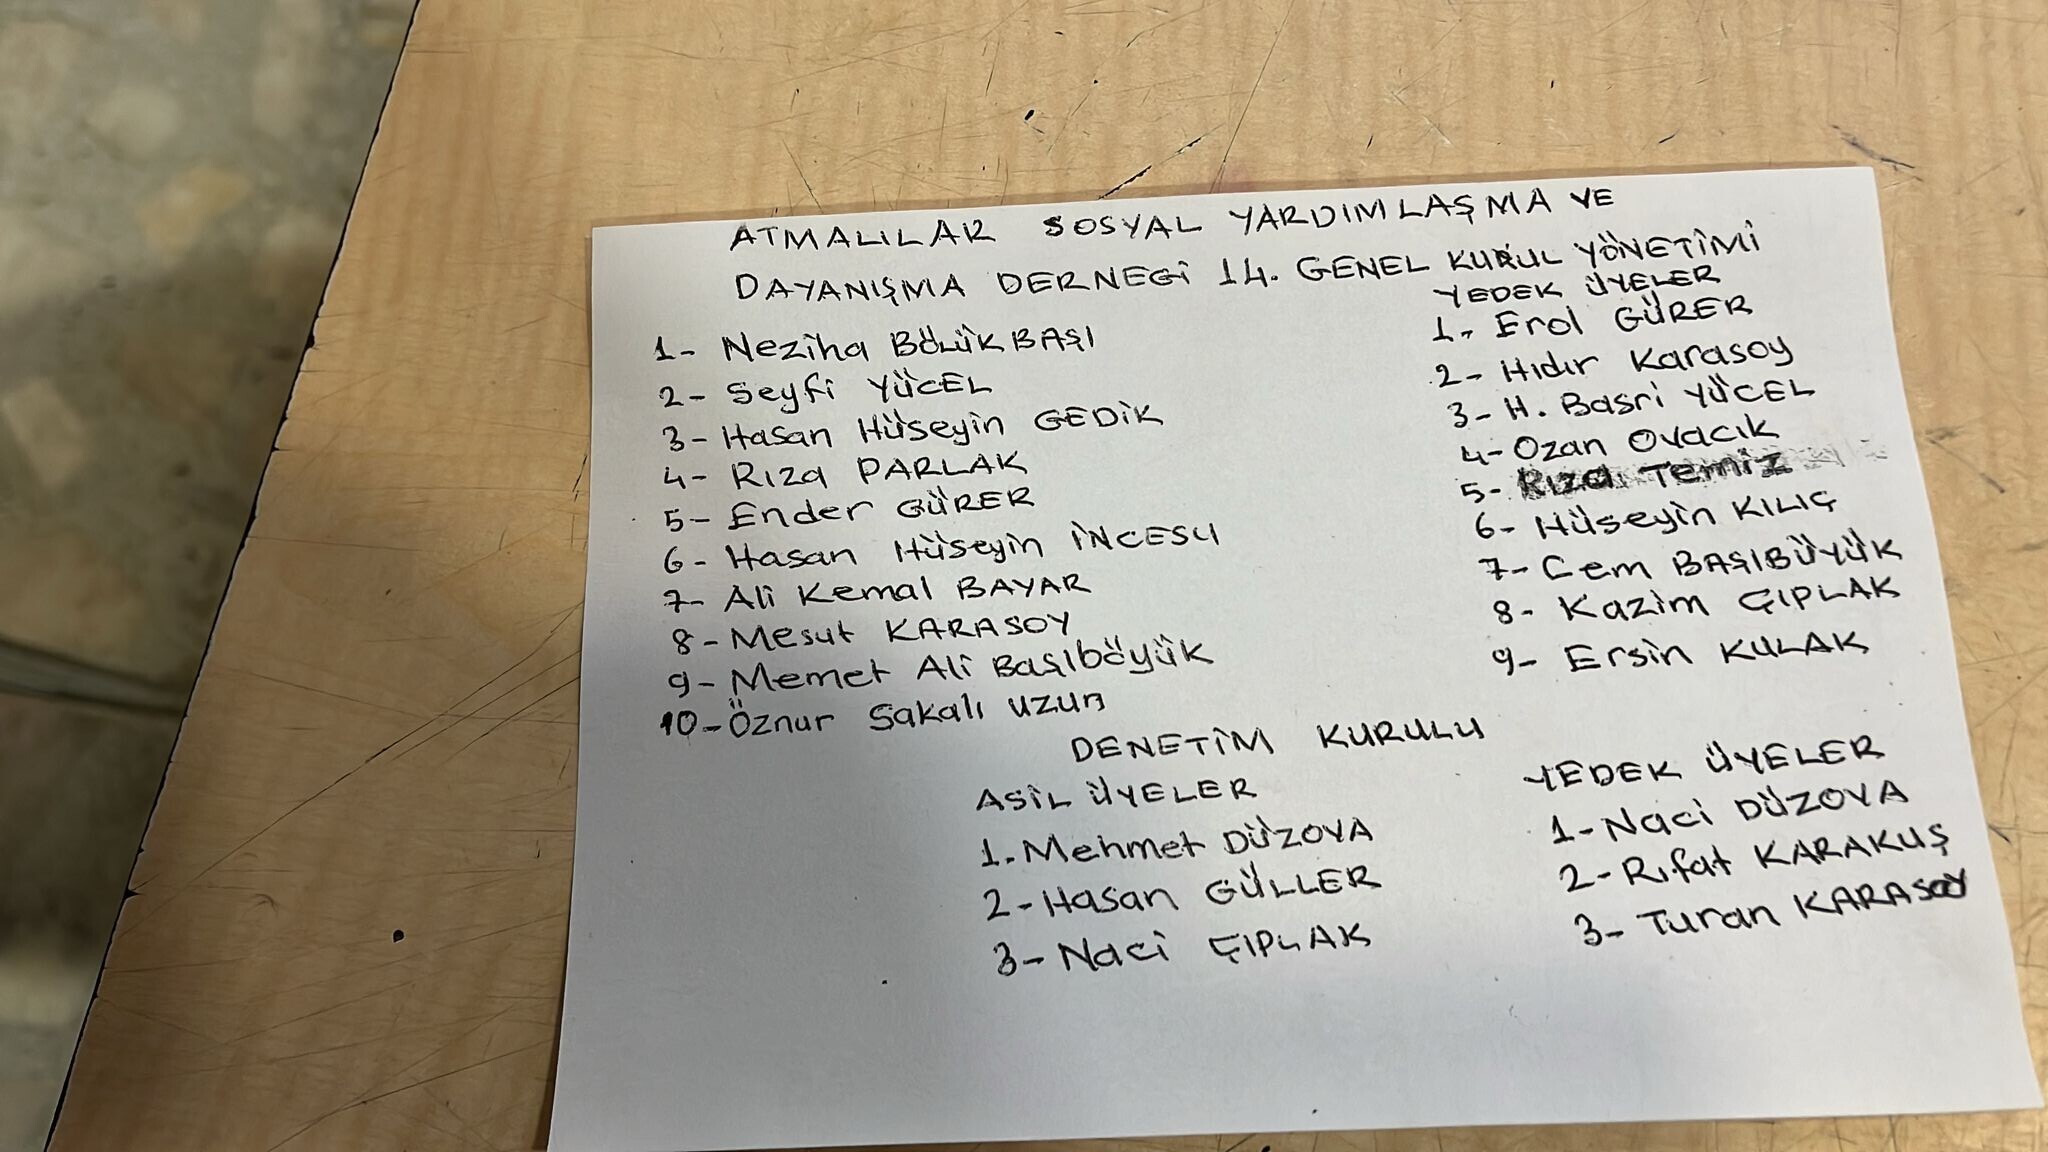 ATMALILAR SOSYAL YARDIMLAŞMA VE
DAYANIŞMA DERNEGİ 14. GENEL KURUL YÖNETİMİ
1- Neziha BÖLÜKBAŞI
2- Seyfi YÜCEL
3- Hasan Hüseyin GEDİK
4- Rıza PARLAK
5- Ender GÜRER
6- Hasan Hüseyin İNCESU
7- Ali Kemal BAYAR
8- Mesut KARASOY
9- Memet Ali Başıböyük
10- Öznur Sakalı uzun
YEDEK ÜYELER
1- Erol GÜRER
2- Hıdır Karasoy
3- H. Basri YÜCEL
4- Ozan Ovacık
5- Rıza Temiz
6- Hüseyin KILIÇ
7- Cem BAŞIBÜYÜK
8- Kazim ÇIPLAK
9- Ersin KULAK
DENETİM KURULU
ASİL ÜYELER
1. Mehmet DÜZOVA
2- Hasan GÜLLER
3- Naci ÇIPLAK
YEDEK ÜYELER
1- Naci DÜZOVA
2- Rıfat KARAKUŞ
3- Turan KARASOY